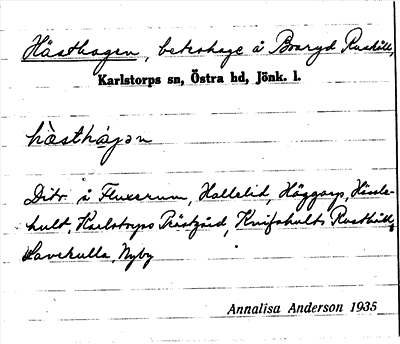 Hästhagen, beteshage å Boaryd Rusthåll,
Karlstorps sn, Östra hd, Jönk. l.
hästhágən
Dito å Fluxerum, Hallelid, Häggarp, Hässle-
hult, Karlstorps Prästgård, Knifshult, Rusthåll,
Lavekulla, Nyby
Annalisa Anderson 1935